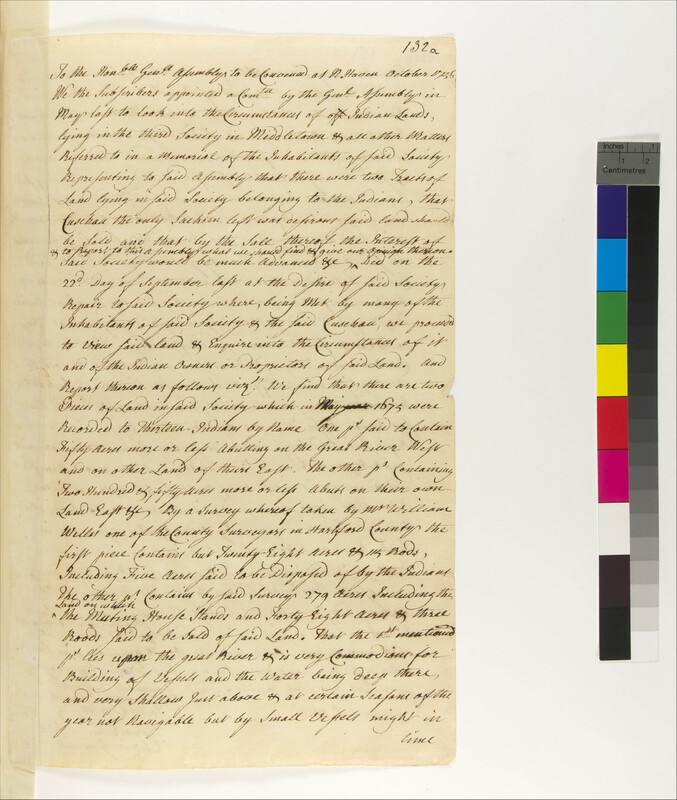 132a
To the Honble Genll Assembly, to be Convened at N Haven October
We the Subscribers appointed a Comtee by the Genll Assembly in
May last to look into the Circumstances of Indian Lands,
lying in the third Society in Middletown & all other Matters
Referred to in a Memorial of the Inhabitants of said Society
Representing to said Assembly that there were two Tracts of
Land lying in said Society belonging to the Indians, that
Cusehau the only Sachem left was desirous said land should
be Sold and that by the Sale thereof the Interest of
& to Report to said Assembly what we should find & give our opinion thereon
said Society would be much Advanced &c, Did on the
22d Day of September last at the desire of said Society
Repair to said Society where, being Met by many of the
Inhabitants of said Society & the said Cusehau, we proceed
to View said land & Enquire into the Circumstances of it
and of the Indian Owners or Proprietors of said Land. And
Report thereon as follows vizt. We find that there are two
Pieces of Land in said Society which in 1673 were
Recorded to Thirteen Indians by Name One ps said to Contain
Fifty Acres more or less Abutting on the Great River West
and on other Land of theirs East. The other ps Containing
Two Hundred & fifty Acres more or less Abuts on their own
Land East &c, By a Survey whereof taken by Mr William
Welles one of the County Surveyors in Hartford County the
first piece Contains but Twenty Eight Acres & Rods,
Including Five Acres said to be Disposed of by the Indians
The other ps Contains by said Survey 279 Acres Including the
Land on which
the Meeting House Stands and Forty Eight Acres & three
Roods said to be Sold of said Land. That the 1st mentioned
ps lies upon the great River & is very Commodious for
Building of Vessels and the Water being deep there,
and very Shallow Just above & at certain Seasons of the
year not Navigable but by Small Vessels might in
time
inches 1
1 2
Centimetres